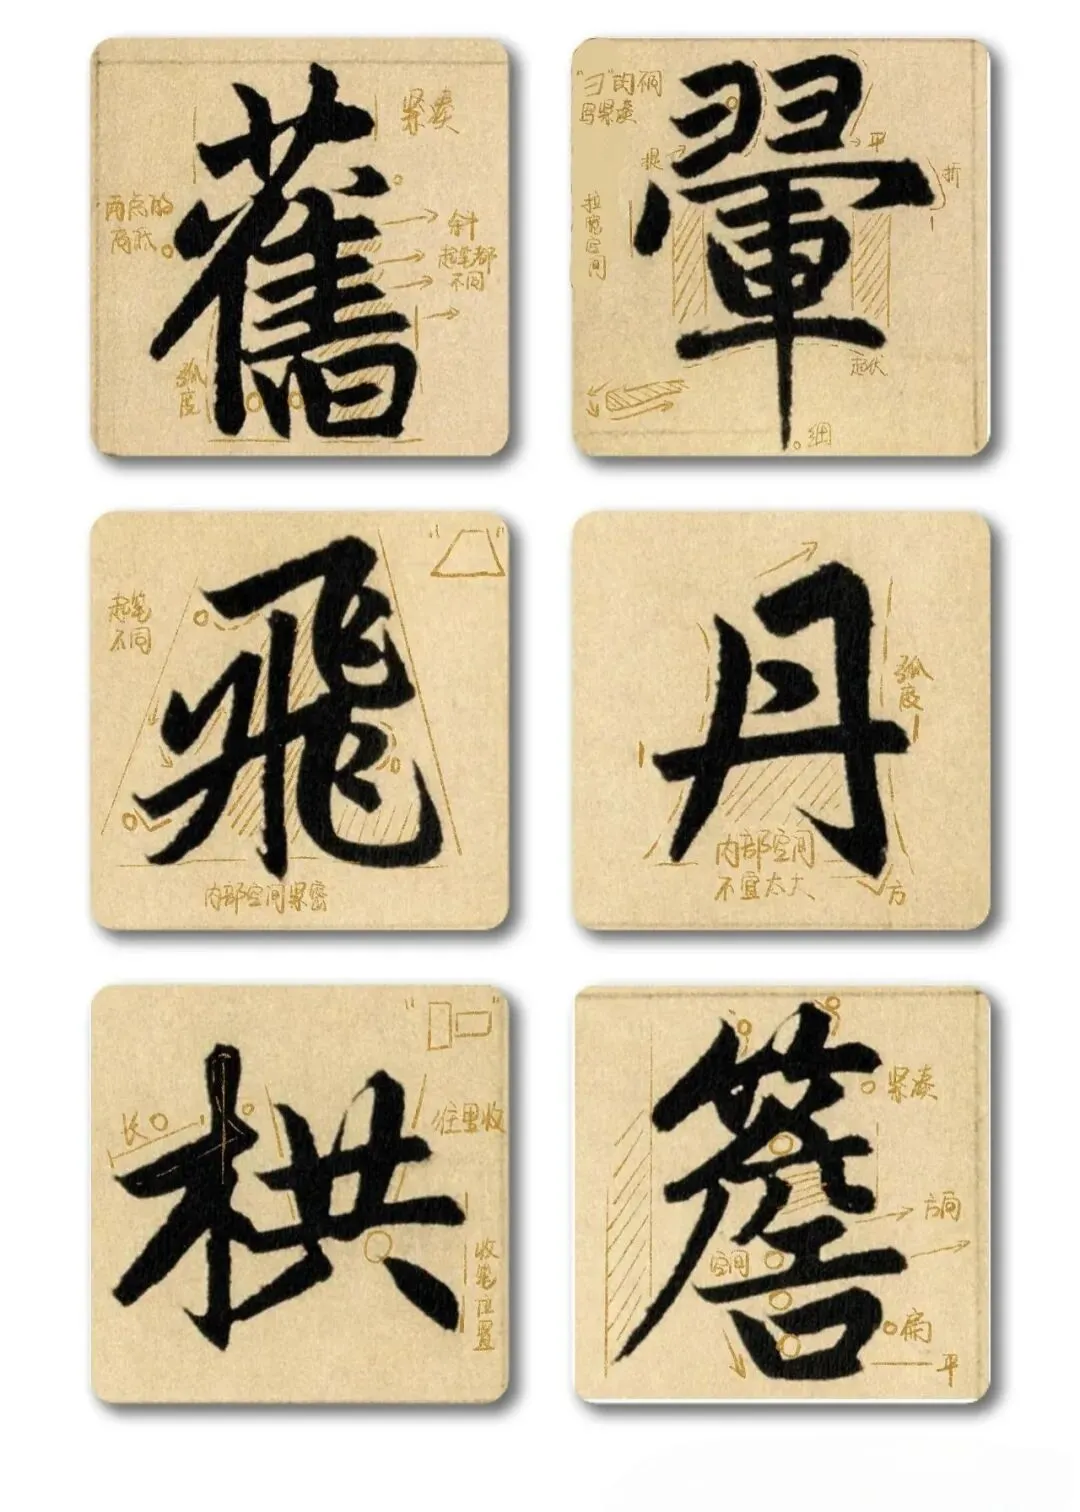 舊
紧凑
两点的
高低
斜
起笔都
不同
弧
度
翬
"彐"的内
写紧凑
提
平
折
拉
宽
空
间
起伏
细
飛
起笔
不同
内部空间紧密
丹
弧
度
内部空间
不宜太大
方
栱
长
往里收
收
笔
位
置
簷
紧凑
方向
空间
扁
平